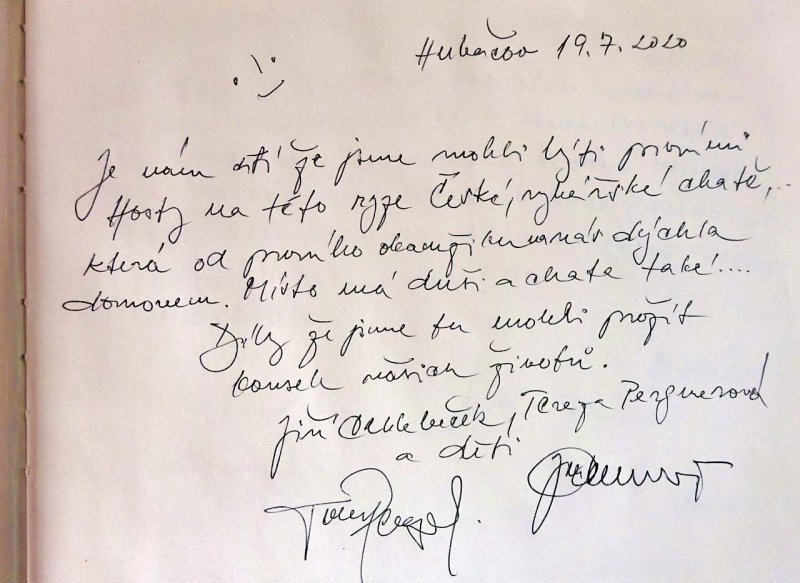 Hubačov 19.7.2020
Je nám ctí že jsme mohli býti prvními
Hosty na této ryze České, rybářské chatě,..
která od prvního okamžiku na nás dýchla
domovem. Místo má duši a chata také....
Díky že jsme tu mohli prožít
kousek našich životů.
Jiří Tereza Pergnerová
a děti